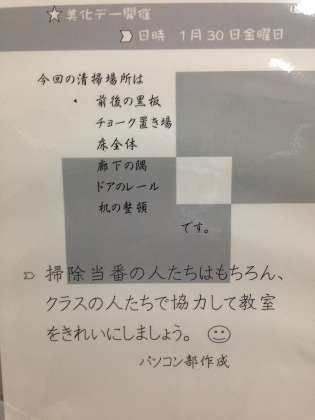 ☆美化デー開催
日時 1月30日金曜日
今回の清掃場所は
・ 前後の黒板
チョーク置き場
床全体
廊下の隅
ドアのレール
机の整頓
です。
掃除当番の人たちはもちろん、
クラスの人たちで協力して教室
をきれいにしましょう。
パソコン部作成